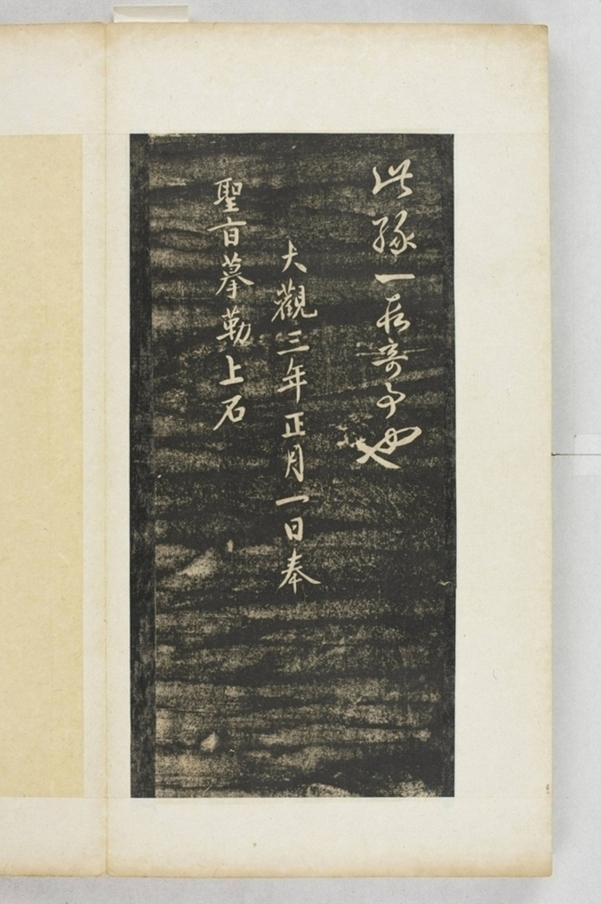 此緣一段奇事也
大觀三年正月一日奉
聖旨摹勒上石